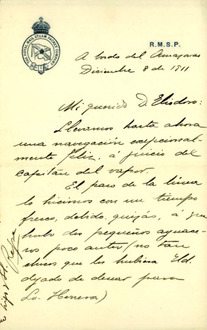 R.M.S.P.
A bordo del Amazonas
Diciembre 8 de 1911
Mi querido D. Eliodoro:
Llevamos hasta ahora
una navegación excepcional-
mente feliz, a juicio del
capitán del vapor.
El paso de la linea
lo hicimos con un tiempo
fresco, debido, quizás, á que
hubo dos pequeños aguace-
ros poco antes (no tan
chicos que los hubiera Ud
dejado de desear para
La Henera)